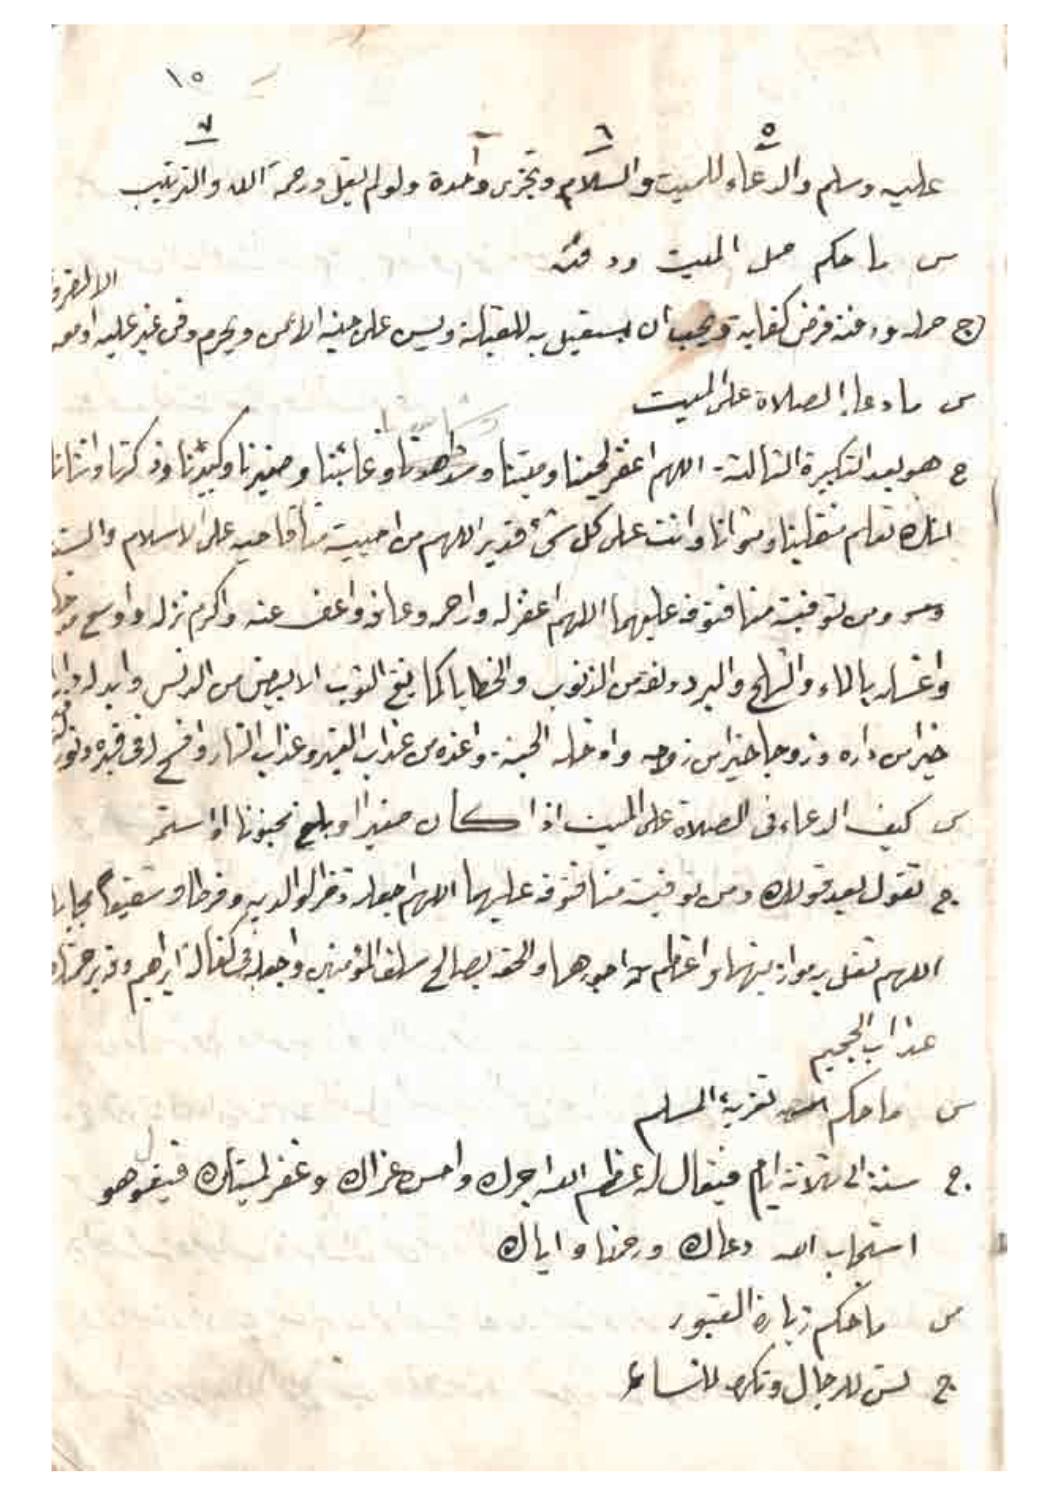 ١٥
٥ ٦ ٧
عليه وسلم والدعاء للميت والسلام وتجزى واحدة ولو لم يقل ورحمة الله والترتيب
س ما حكم حمل الميت ودفنه
الا لضرو
ج حمله ودفنه فرض كفايه ويجب أن يستقبل به للقبلة ويسن على جنبه الايمن ويحرم دفن غيره عليه او معه
س ما دعاء الصلاة على الميت
وشاهدنا
ج هو بعد التكبيرة الثالثة. اللهم اغفر لحينا وميتنا وشاهدنا وغائبنا وصغيرنا وكبيرنا وذكرنا وانثانا
انك تعلم منقلبنا ومثوانا وانت على كل شئ قدير اللهم من احييته منا فاحيه على الاسلام والسنة
ومن توفيته منا فتوفه عليهما اللهم اغفر له وارحمه وعافه واعف عنه واكرم نزله واوسع مدخله
واغسله بالماء والثلج والبرد ونقه من الذنوب والخطايا كما ينقى الثوب الابيض من الدنس وابدله دارا
خيرا من داره وزوجا خيرا من زوجه وادخله الجنة. واعذه من عذاب القبر وعذاب النار وافسح له فى قبره ونور
س كيف الدعاء فى الصلاة على الميت اذا كان صغيرا او بلغ مجنونا او استمر
ج تقول بعد قولك ومن توفيته منا فتوفه عليهما اللهم اجعله ذخرا لوالديه وفرطا وشفيعا مجابا
اللهم ثقل به موازينهما واعظم به اجورهما والحقه بصالح سلف المؤمنين واجعله فى كفالة ابراهيم وقه برحمتك
عذاب الجحيم
س ما حكم تعزية المسلم
ج سنة الى ثلاثة ايام فيقال له عظم الله اجرك واحسن عزاك وغفر لميتك فيقول هو
استجاب الله دعاك ورحمنا واياك
س ما حكم زيارة القبور
ج تسن للرجال وتكره للنساء